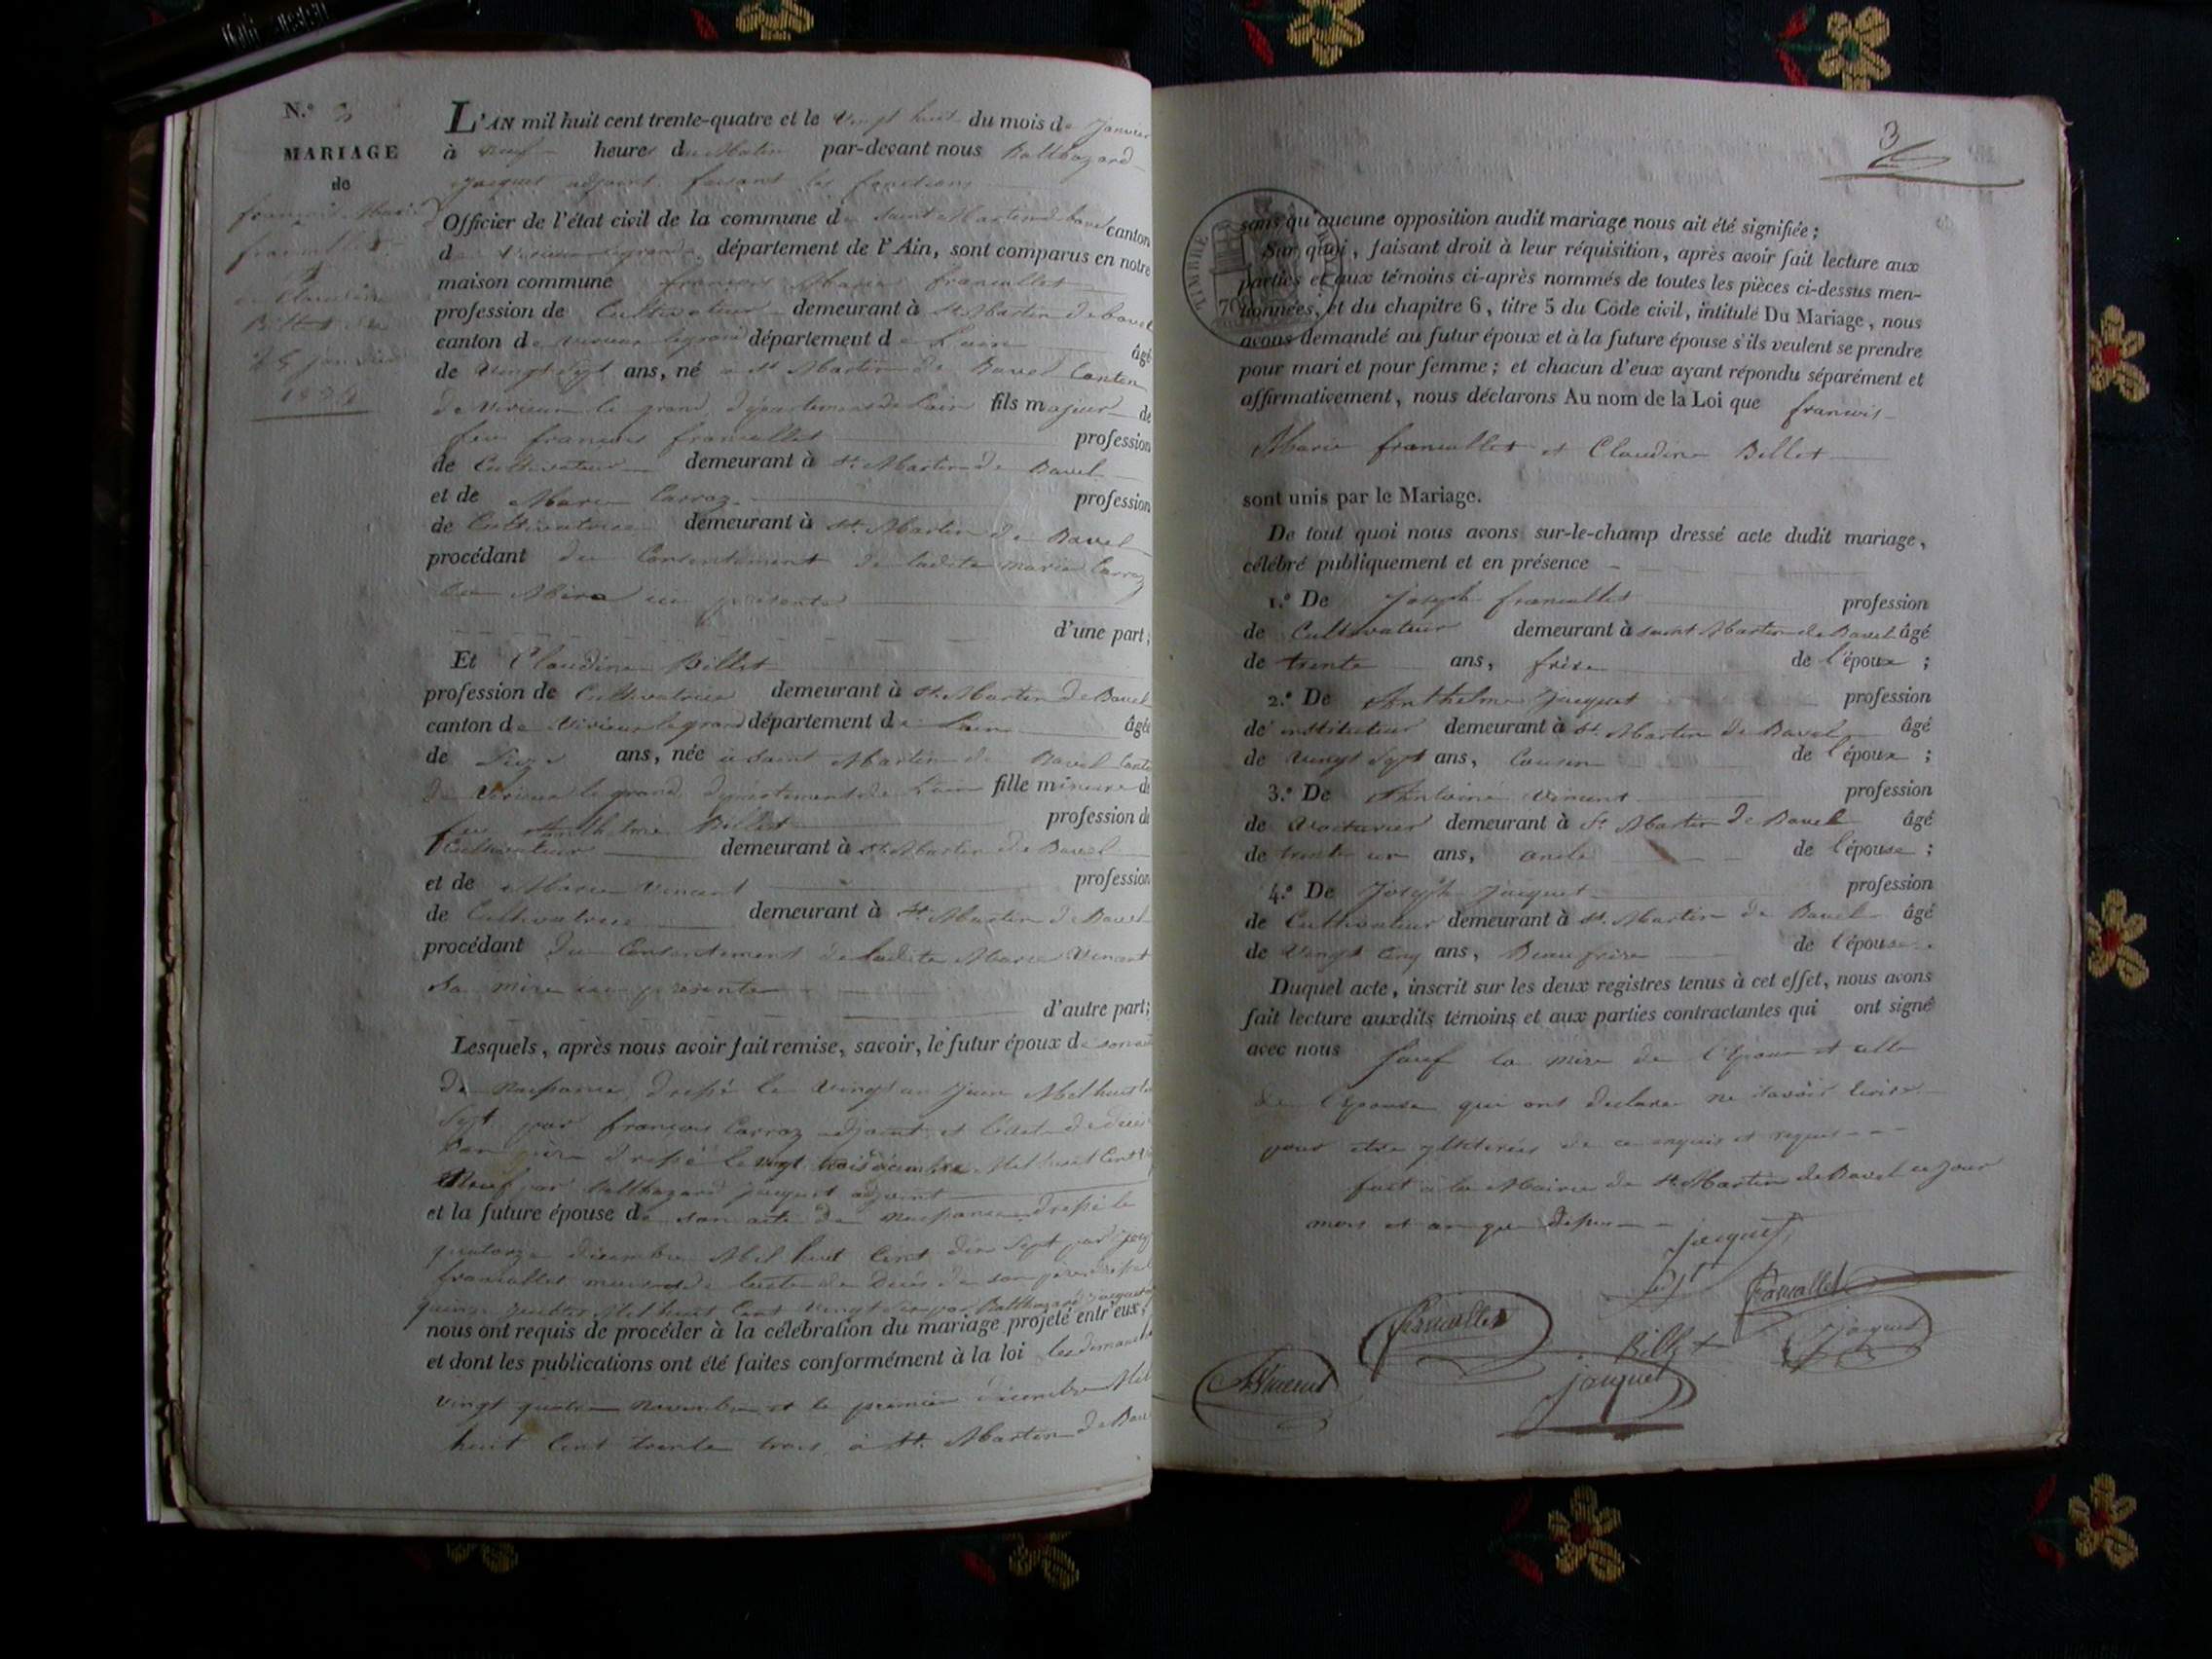 N.º 3
MARIAGE
de
françois Marie
francallet
et
Claudine
Billet du
janvier
L'AN mil huit cent trente-quatre et le vingt huit du mois de Janvier
à neuf heures du Matin par-devant nous Balthazard
jacquet adjoint faisant les fonctions
Officier de l'état civil de la commune de Saint Martin de bavel canton
de virieu le grand, département de l'Ain, sont comparus en notre
maison commune françois Marie francallet
profession de Cultivateur demeurant à St Martin de bavel
canton de virieu le grand département de Lain âgé
de vingt Sept ans, né à St Martin de Bavel Canton
de virieu le grand, département de Lain fils majeur de
feu françois francallet profession
de Cultivateur demeurant à St. Martin de Bavel
et de Marie Carraz profession
de Cultivatrice demeurant à St. Martin de Bavel
procédant du Consentement de ladite marie Carraz
Mère présente
d'une part;
Et Claudine Billet
profession de Cultivatrice demeurant à St. Martin de Bavel
canton de virieu le grand département de Lain âgée
de Seize ans, née à Saint Martin de Bavel
de virieu le grand, département de Lain fille mineure de
feu Anthelme Billet profession de
Cultivateur demeurant à St Martin de Bavel
et de Marie Vincent profession
de Cultivatrice demeurant à St. Martin de Bavel
procédant du Consentement de ladite Marie Vincent
Sa mère présente
d'autre part;
Lesquels, après nous avoir fait remise, savoir, le futur époux de son
de naissance, dressé le vingt un juin Mil huit
Sept par françois Carraz adjoint et l'acte de décès
son père dressé le vingt trois décembre Mil huit Cent
Neuf par Balthazard jacquet adjoint
et la future épouse de son acte de naissance dressé le
quatorze décembre Mil huit Cent dix Sept par
francallet de lacte de décès de son père
quinze Mil huit Cent vingt par Balthazard jacquet
nous ont requis de procéder à la célébration du mariage projeté entr'eux,
et dont les publications ont été faites conformément à la loi les dimanches
vingt quatre novembre et le premier décembre Mil
huit Cent trente trois, à St. Martin de Bavel
3
TIMBRE
70
sans qu'aucune opposition audit mariage nous ait été signifiée;
Sur quoi, faisant droit à leur réquisition, après avoir fait lecture aux
parties et aux témoins ci-après nommés de toutes les pièces ci-dessus men-
tionnées, et du chapitre 6, titre 5 du Code civil, intitulé Du Mariage, nous
avons demandé au futur époux et à la future épouse s'ils veulent se prendre
pour mari et pour femme; et chacun d'eux ayant répondu séparément et
affirmativement, nous déclarons Au nom de la Loi que francois
Marie francallet et Claudine Billet
sont unis par le Mariage.
De tout quoi nous avons sur-le-champ dressé acte dudit mariage,
célébré publiquement et en présence
1.º De Joseph francallet profession
de Cultivateur demeurant à saint Martin de Bavel âgé
de trente ans, frère de l'époux;
2.º De Anthelme Jacquet profession
de instituteur demeurant à St. Martin de Bavel âgé
de vingt Sept ans, Cousin de l'époux;
3.º De Antoine Vincent profession
de Voiturier demeurant à St Martin de Bavel âgé
de trente un ans, oncle de l'épouse;
4.º De Joseph Jacquet profession
de Cultivateur demeurant à St. Martin de Bavel âgé
de vingt Cinq ans, Beau frère de l'épouse.
Duquel acte, inscrit sur les deux registres tenus à cet effet, nous avons
fait lecture auxdits témoins et aux parties contractantes qui ont signé
avec nous Sauf la mère de l'Epoux et celle
de l'Epouse qui ont déclaré ne savoir
pour être illiterées de ce enquis et requis
fait à la Mairie de St. Martin de Bavel ce jour
mois et an que dessus
Jacquet
francallet
francallet
Billet
jacquet
A Vincent
jacquet